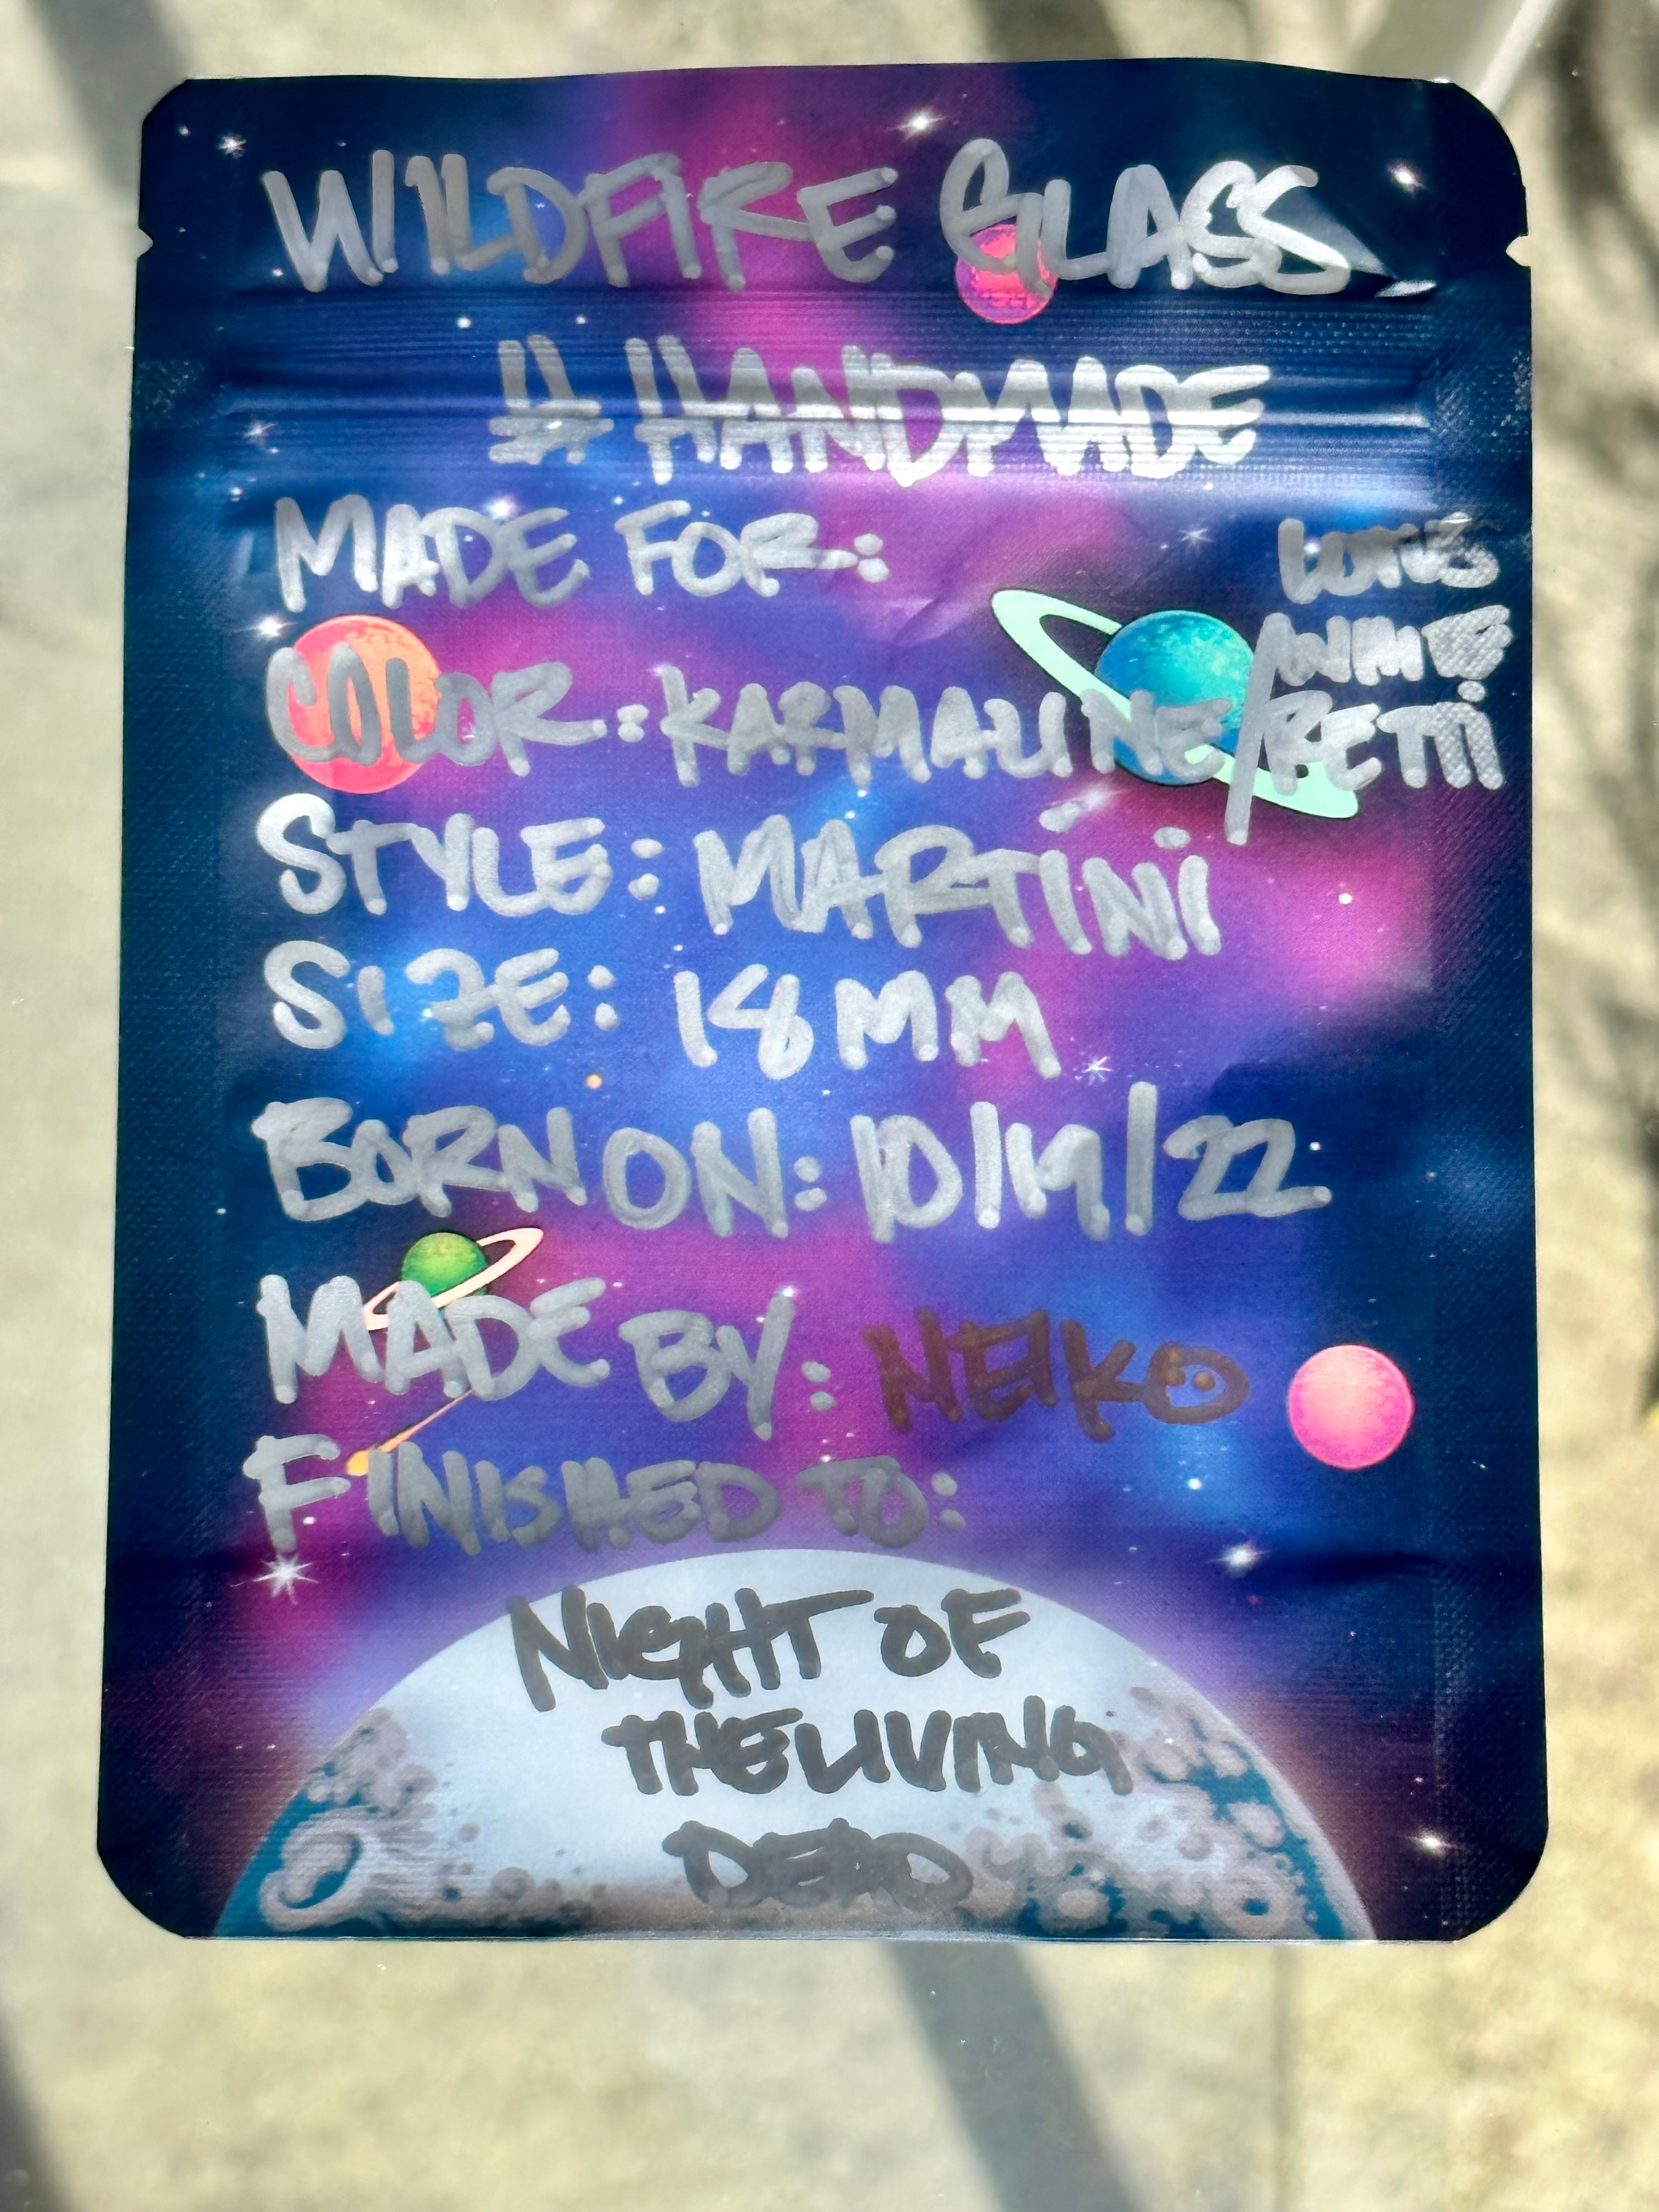 WILDFIRE GLASS
# HANDMADE
MADE FOR:
COLOR: KARMALINE/
LOTUS
ANIME
RETTi
STYLE: MARTiNi
SIZE: 18MM
BORN ON: 10/19/22
MADE BY: NEIKO
FINISHED TO:
NIGHT OF
THE LIVING
DEAD